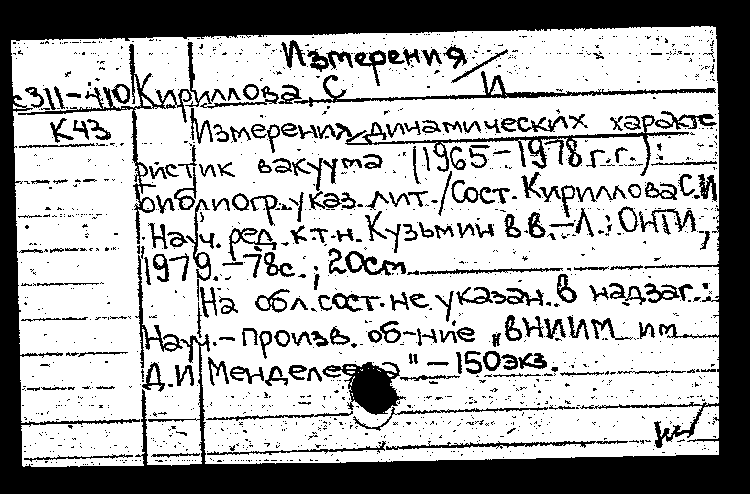 Измерения
с311-410 Кириллова, С И
К43 Измерения динамических характе
ристик вакуума (1965-1978г.г.):
библиогр.указ.лит./Сост.Кириллова С.И
Науч. ред. к.т.н. Кузьмин В.В.-Л.: ОНТИ,
1979.-78с.; 20см
На обл.сост.не указан. В надзаг.:
Науч.-произв. об-ние "ВНИИМ им.
Д.И. Менделеева"-150экз.